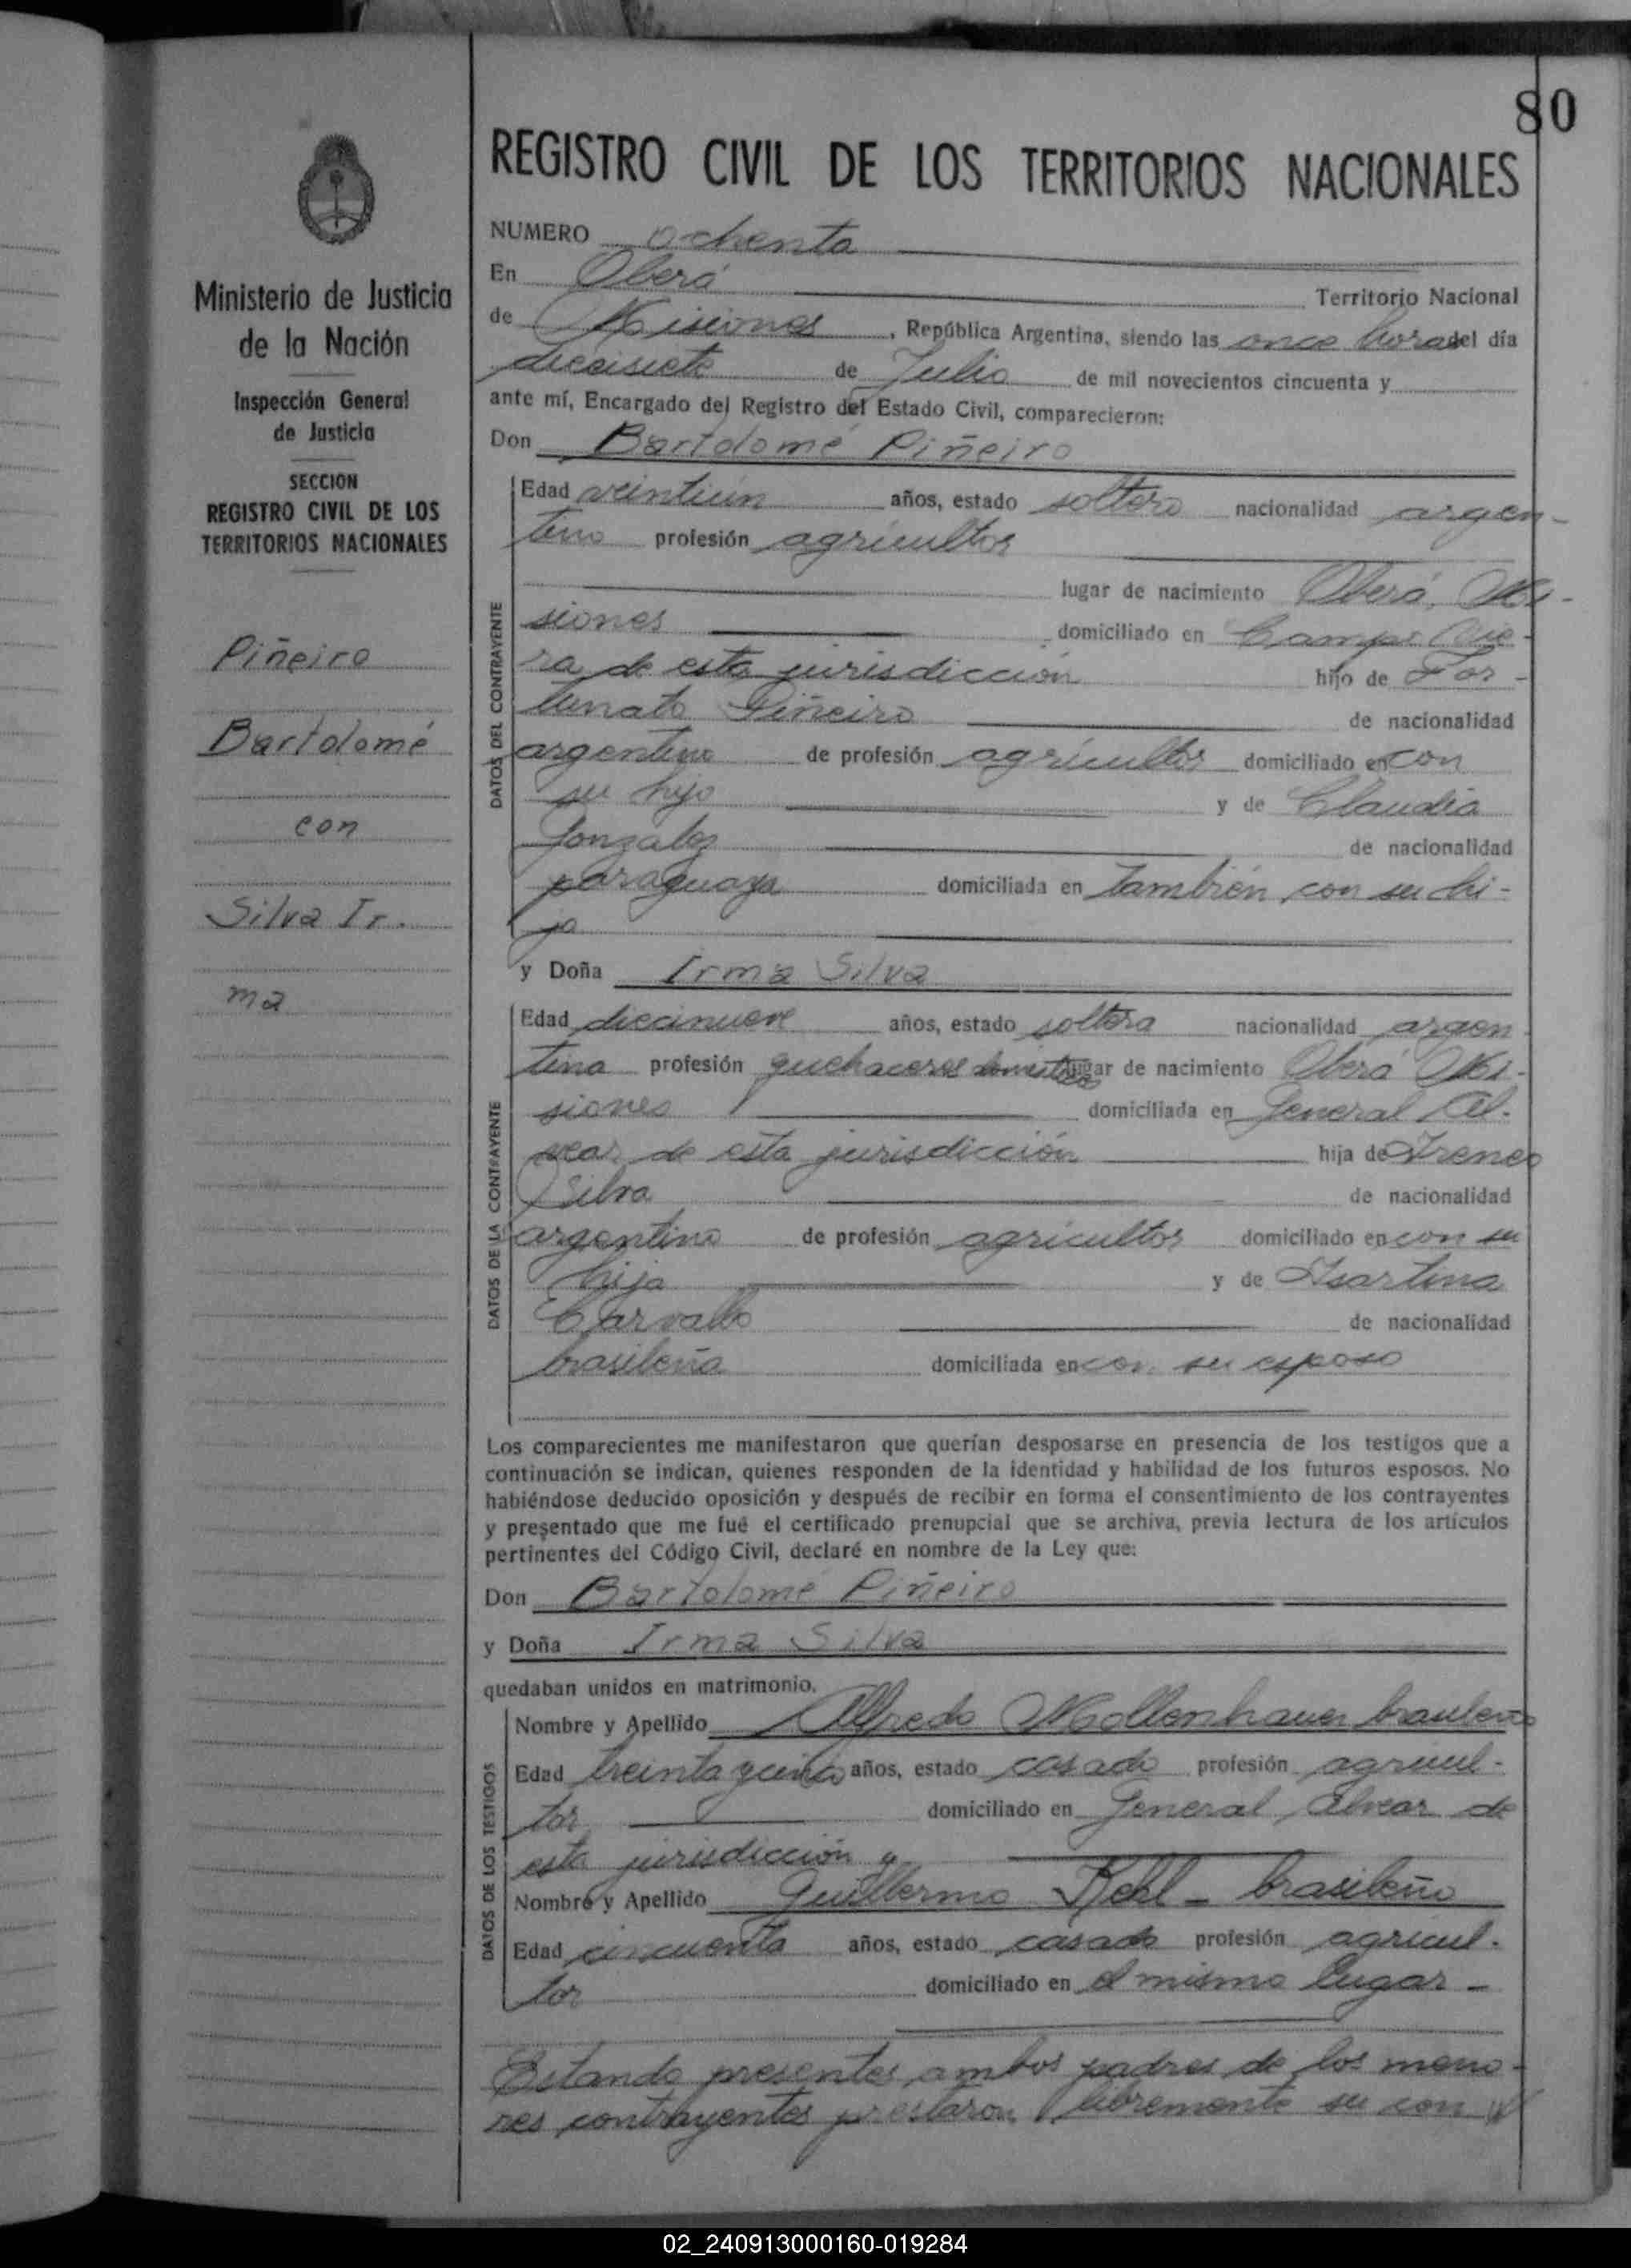 80
REGISTRO CIVIL DE LOS TERRITORIOS NACIONALES
Ministerio de Justicia
de la Nación
Inspección General
de Justicia
SECCION
REGISTRO CIVIL DE LOS
TERRITORIOS NACIONALES
Piñeiro
Bartolomé
con
Silva Ir.
ma
NUMERO ochenta
En Oberá Territorio Nacional
de Misiones, República Argentina, siendo las once horas del día
diecisiete de Julio de mil novecientos cincuenta y
ante mí, Encargado del Registro del Estado Civil, comparecieron:
Don Bartolomé Piñeiro
DATOS DEL CONTRAYENTE
Edad veintiún años, estado soltero nacionalidad argen-
tino profesión agricultor
lugar de nacimiento Oberá, Mi-
siones domiciliado en Campo Vie-
ra de esta jurisdicción hijo de For-
tunato Piñeiro de nacionalidad
argentino de profesión agricultor domiciliado en con
su hijo y de Claudia
Gonzalez de nacionalidad
paraguaya domiciliada en también con su hi-
jo
y Doña Irma Silva
DATOS DE LA CONTRAYENTE
Edad diecinueve años, estado soltera nacionalidad argen
tina profesión quehaceres domesticos lugar de nacimiento Oberá Mi-
siones domiciliada en General Al-
vear de esta jurisdicción hija de Ireneo
Silva de nacionalidad
argentino de profesión agricultor domiciliado en con su
hija y de Isartina
Carvallo de nacionalidad
brasileña domiciliada en con su esposo
Los comparecientes me manifestaron que querían desposarse en presencia de los testigos que a
continuación se indican, quienes responden de la identidad y habilidad de los futuros esposos. No
habiéndose deducido oposición y después de recibir en forma el consentimiento de los contrayentes
y presentado que me fué el certificado prenupcial que se archiva, previa lectura de los artículos
pertinentes del Código Civil, declaré en nombre de la Ley que:
Don Bartolomé Piñeiro
y Doña Irma Silva
quedaban unidos en matrimonio.
DATOS DE LOS TESTIGOS
Nombre y Apellido Alfredo Mollenhauer brasileño
Edad treinta y cinco años, estado casado profesión agricul-
tor domiciliado en General Alvear de
esta jurisdicción y
Nombre y Apellido Guillermo Kehl - brasileño
Edad cincuenta años, estado casado profesión agricul-
tor domiciliado en el mismo lugar -
Estando presentes ambos padres de los meno-
res contrayentes prestaron libremente su con
02_240913000160-019284